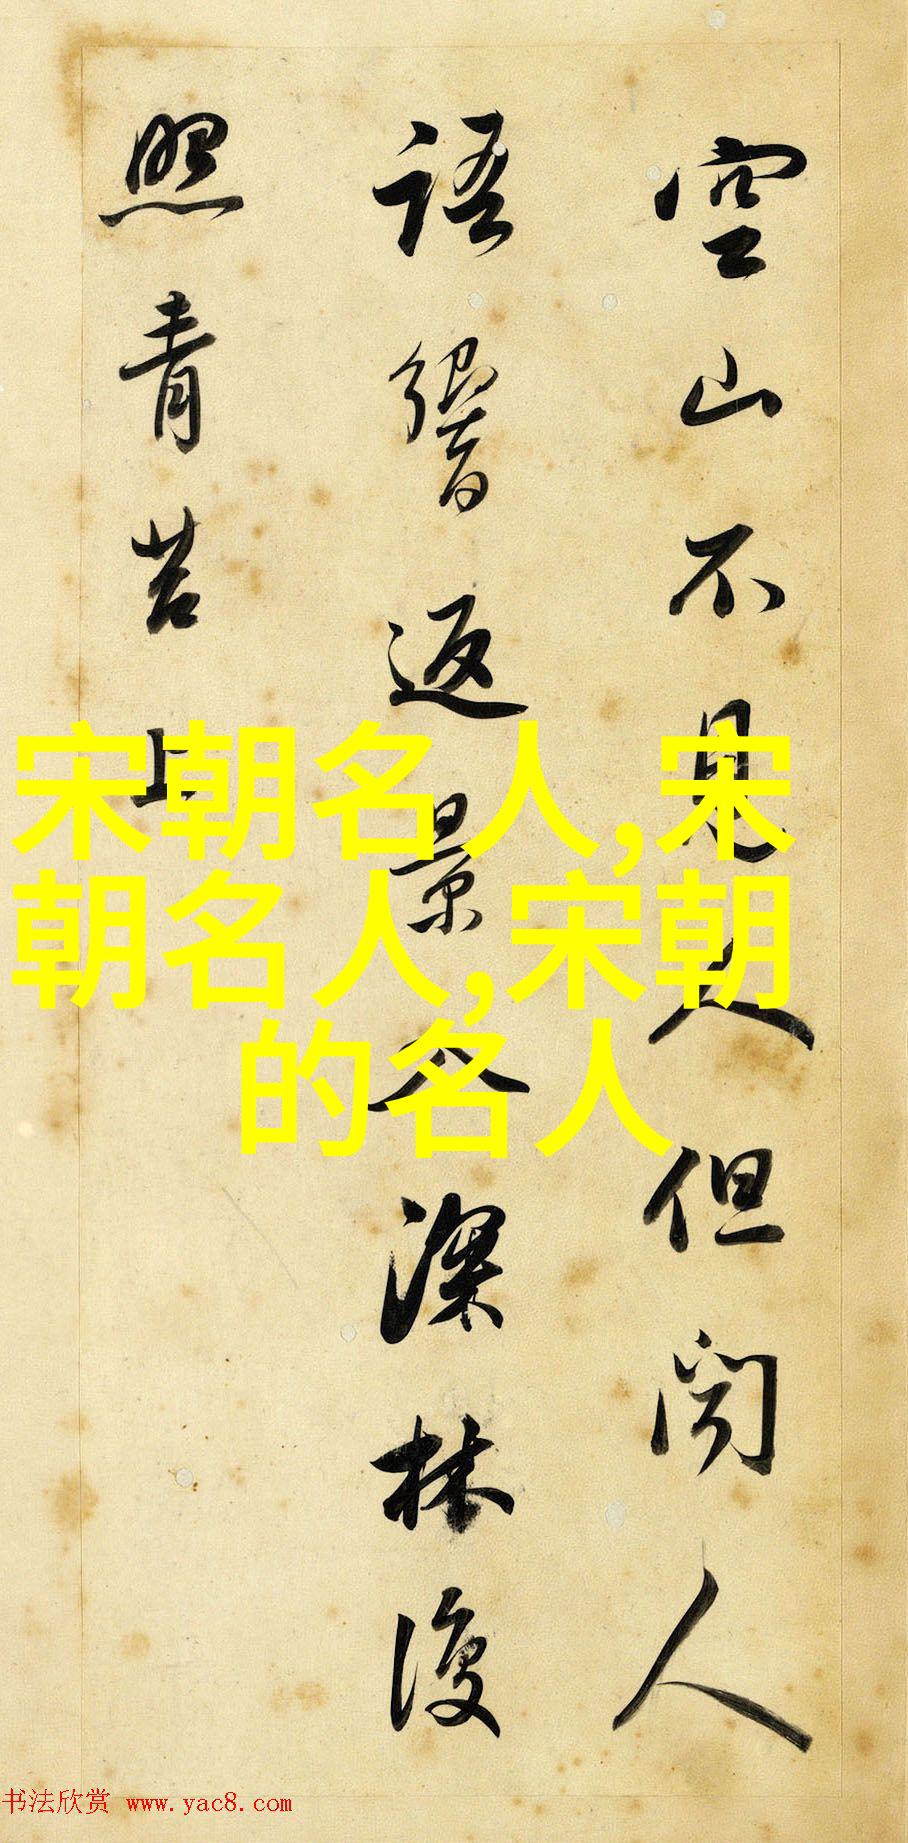 空山不見人但聞人
語響返景入深林復
照青苔上
宋朝名人,宋
朝名人,宋朝
的名人
书法欣赏 www.yac8.com